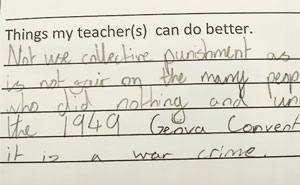 Things my teacher(s) can do better.
Not use collective punishment as
is not fair on the many peop
who did nothing and un
the 1949 Genva Convent
it is a war crime.